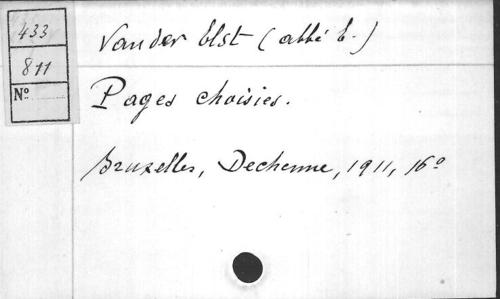 433
811
Nº
Vander Elst (abbé E.)
Pages choisies.
Bruxelles, Dechenne, 1911, 16º